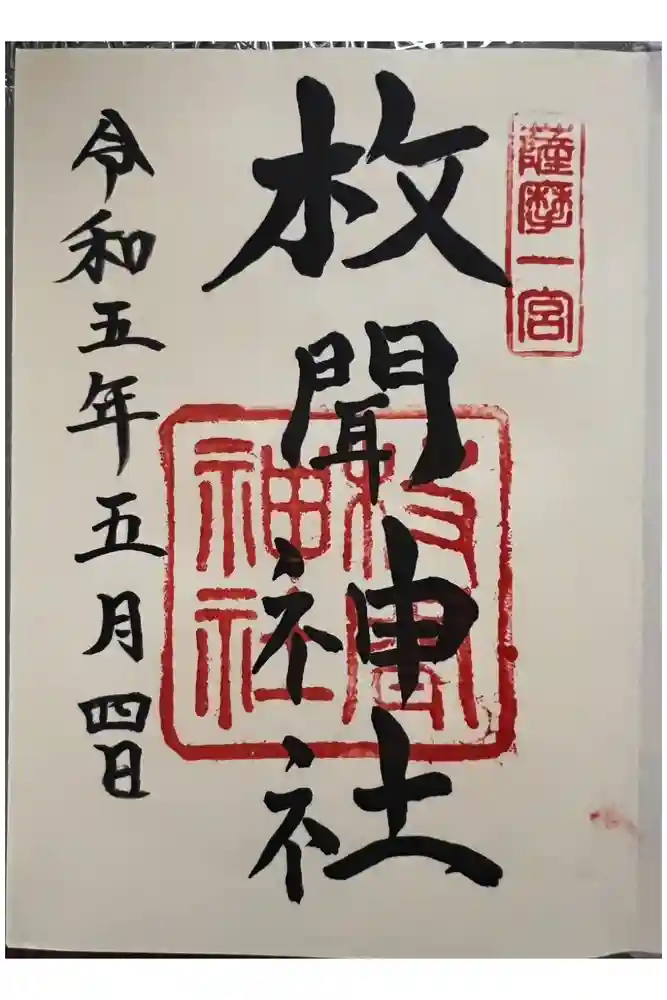 薩摩一宮
枚聞神社
枚聞
神社
令和五年五月四日